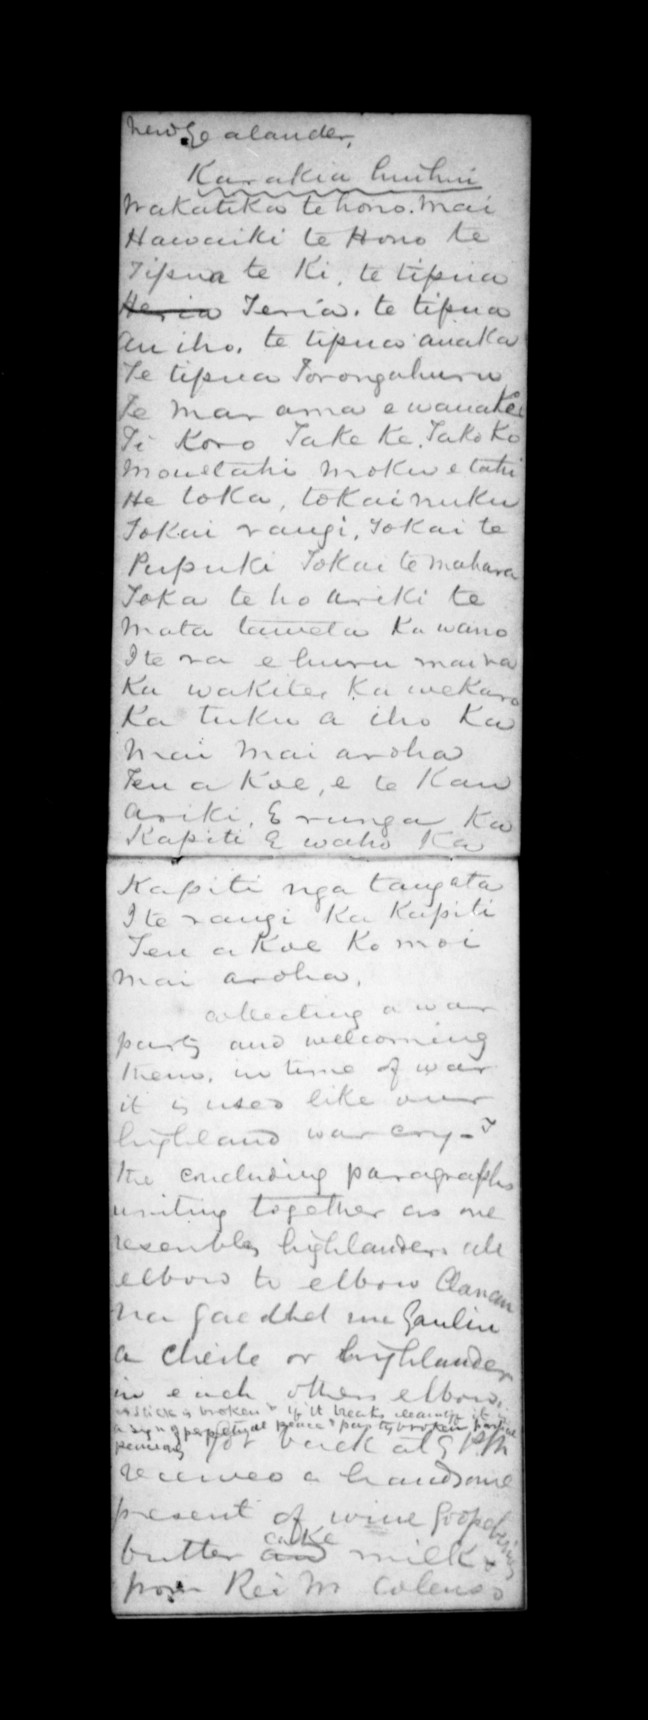 New Zealander,
Karakia huihui
Wakatika te hono. mai
Hawaiki te Hono te
Tipua te Ki, te tipua
Heria Teria. te tipua
an iho. te tipua anaka
Te tipua Torongahuru
Te mar ama e wanakei
Ti Koro Take Ke. Tako Ko
mouetahi moku e tahi
He toka, tokainuku
Tokai rangi, Tokai te
Pupuki Tokai te mahara
Toka te ho ariki te
mata taweta Ka wano
I te ra e huru maira
Ka wakitei Ka wekaro
Ka tuku a iho Ka
mai mai aroha
Ten a Koe, e te Kau
ariki, E runga Ka
Kapiti E waho Ka
Kapiti nga tangata
I te rangi Ka Kapiti
Ten a Koe Ko moi
mai aroha.
collecting a war
party and welcoming
them. in time of war
it is used like our
highland war cry -
the concluding paragraphs
uniting together as one
resembles highlanders all
elbow to elbow Clanan
na Gaedhel me
a cheile or highlanders
in each others elbow.
a stick is broken & if it breaks it is
a sign of perpetual peace & partly broken partial
got back at 9 PM
received a handsome
present of wine Goosberries
butter cake and milk &
from Rev M Colenso